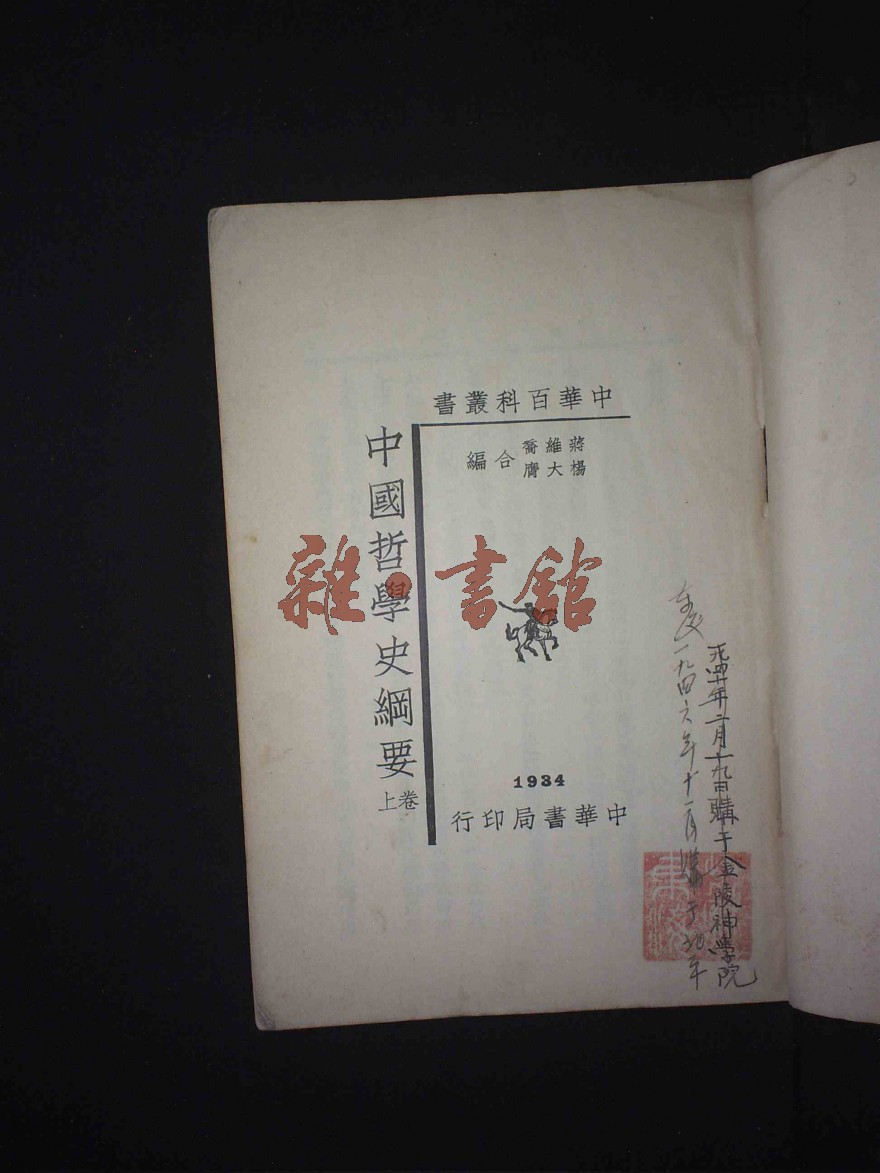 中華百科叢書
蔣維喬
楊大膺
合編
中國哲學史綱要
卷上
雜·書館
1934
中華書局印行
年二月十九日購于金陵神學院
一九四六年十一月 于北平